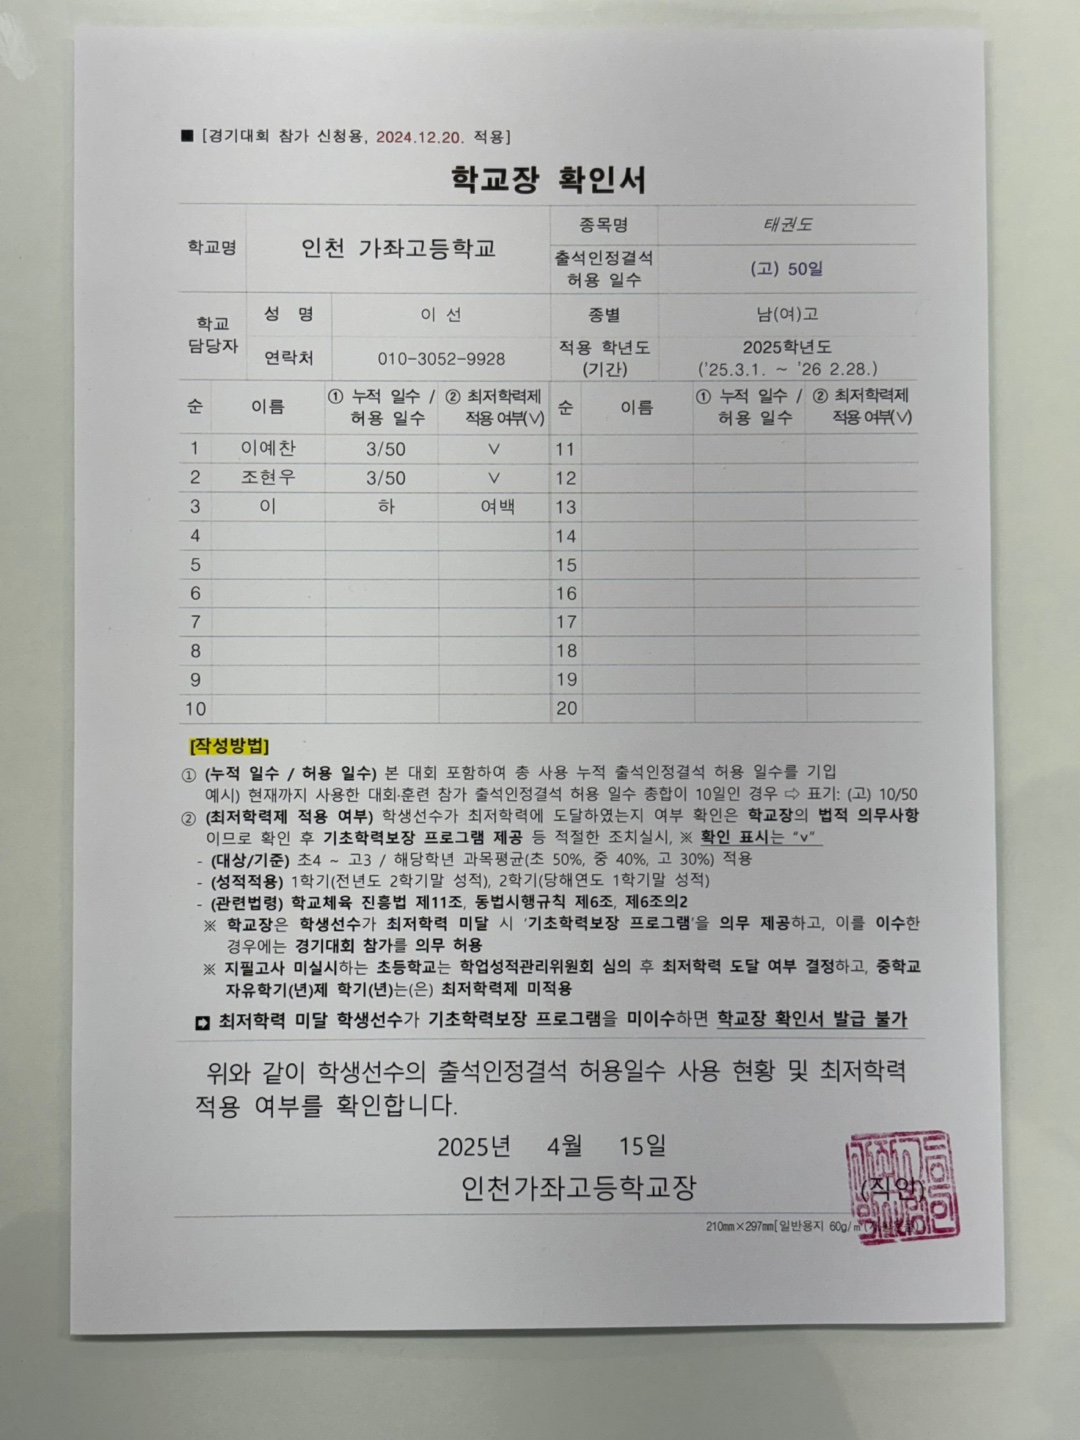 ■ [경기대회 참가 신청용, 2024.12.20. 적용]
학교장 확인서
학교명 인천 가좌고등학교 종목명 태권도
출석인정결석 허용 일수 (고) 50일
학교 담당자 성 명 이 선 종별 남(여)고
연락처 010-3052-9928 적용 학년도 (기간) 2025학년도 ('25.3.1. ~ '26 2.28.)
순 이름 ① 누적 일수 / 허용 일수 ② 최저학력제 적용 여부(∨) 순 이름 ① 누적 일수 / 허용 일수 ② 최저학력제 적용 여부(∨)
1 이예찬 3/50 ∨ 11
2 조현우 3/50 ∨ 12
3 이 하 여백 13
4 14
5 15
6 16
7 17
8 18
9 19
10 20
[작성방법]
① (누적 일수 / 허용 일수) 본 대회 포함하여 총 사용 누적 출석인정결석 허용 일수를 기입
예시) 현재까지 사용한 대회·훈련 참가 출석인정결석 허용 일수 총합이 10일인 경우 ⇨ 표기: (고) 10/50
② (최저학력제 적용 여부) 학생선수가 최저학력에 도달하였는지 여부 확인은 학교장의 법적 의무사항
이므로 확인 후 기초학력보장 프로그램 제공 등 적절한 조치실시, ※ 확인 표시는 "∨"
- (대상/기준) 초4 ~ 고3 / 해당학년 과목평균(초 50%, 중 40%, 고 30%) 적용
- (성적적용) 1학기(전년도 2학기말 성적), 2학기(당해연도 1학기말 성적)
- (관련법령) 학교체육 진흥법 제11조, 동법시행규칙 제6조, 제6조의2
※ 학교장은 학생선수가 최저학력 미달 시 '기초학력보장 프로그램'을 의무 제공하고, 이를 이수한
경우에는 경기대회 참가를 의무 허용
※ 지필고사 미실시하는 초등학교는 학업성적관리위원회 심의 후 최저학력 도달 여부 결정하고, 중학교
자유학기(년)제 학기(년)는(은) 최저학력제 미적용
➡ 최저학력 미달 학생선수가 기초학력보장 프로그램을 미이수하면 학교장 확인서 발급 불가
위와 같이 학생선수의 출석인정결석 허용일수 사용 현황 및 최저학력
적용 여부를 확인합니다.
2025년 4월 15일
인천가좌고등학교장 (직인)
210㎜×297㎜[일반용지 60g/㎡